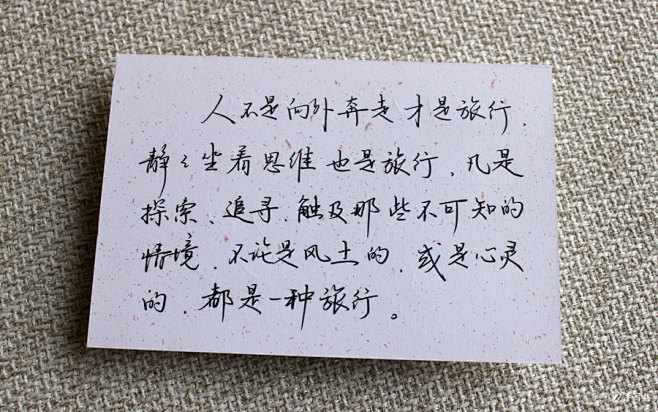 人不是向外奔走才是旅行，
静々坐着思维也是旅行，凡是
探索、追寻、触及那些不可知的
情境，不论是风土的，或是心灵
的，都是一种旅行。